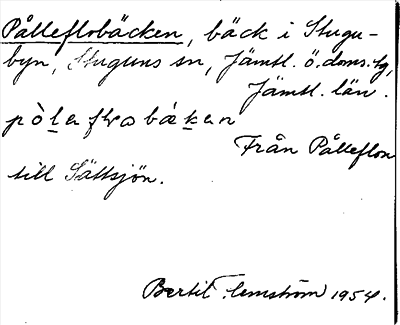 Pålleflobäcken, bäck i Stugu-
byn, Stuguns sn, Jämtl. ö. doms. tg,
Jämtl. län.
pò̀l̲a fɫvo bák̲an
Från Pålleflon
till Sättsjön.
Bertil Flemström 1954.